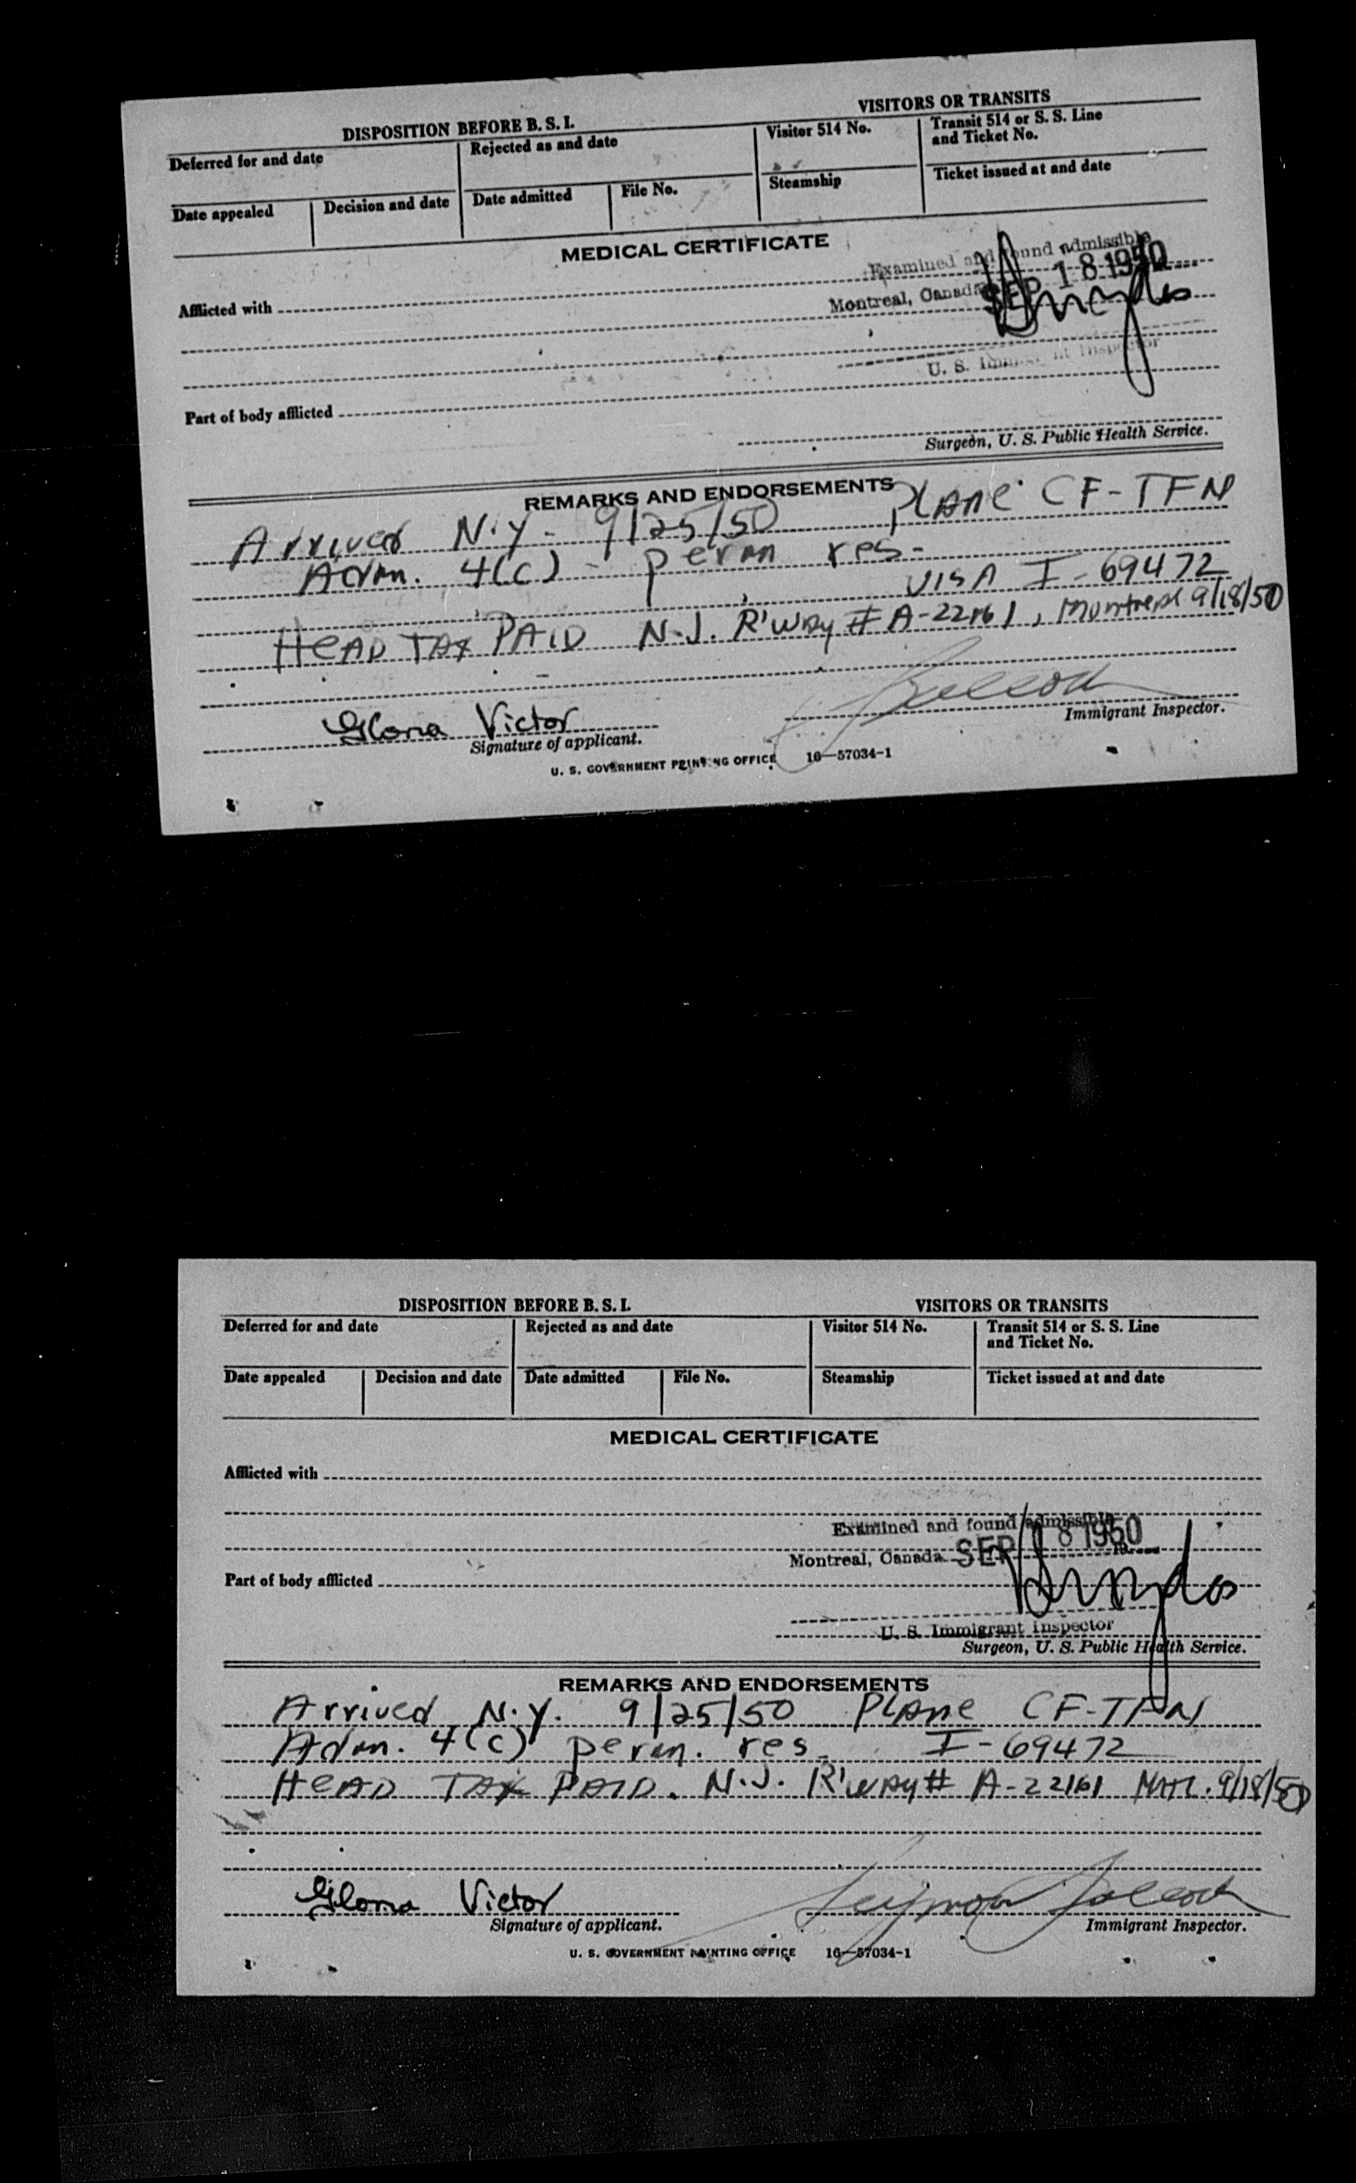 DISPOSITION BEFORE B. S. I.
VISITORS OR TRANSITS
Deferred for and date
Rejected as and date
Visitor 514 No.
Transit 514 or S. S. Line
and Ticket No.
Date appealed
Decision and date
Date admitted
File No.
Steamship
Ticket issued at and date
MEDICAL CERTIFICATE
Examined and found admissible
Afflicted with
Montreal, Canada SEP 18 1950
U. S. Immigrant Inspector
Part of body afflicted
Surgeon, U. S. Public Health Service.
REMARKS AND ENDORSEMENTS
Arrived N.Y. - 9/25/50 PLANE CF-TFN
Adm. 4(c) - perm res -
VISA I-69472
HEAD TAX PAID N.J. R'WAY # A-22161, Montreal 9/18/50
Gloria Victor
Signature of applicant.
Immigrant Inspector.
U. S. GOVERNMENT PRINTING OFFICE 16—57034-1
DISPOSITION BEFORE B. S. I.
VISITORS OR TRANSITS
Deferred for and date
Rejected as and date
Visitor 514 No.
Transit 514 or S. S. Line
and Ticket No.
Date appealed
Decision and date
Date admitted
File No.
Steamship
Ticket issued at and date
MEDICAL CERTIFICATE
Afflicted with
Examined and found admissible
Montreal, Canada SEP 18 1950 19
Part of body afflicted
U. S. Immigrant Inspector
Surgeon, U. S. Public Health Service.
REMARKS AND ENDORSEMENTS
Arrived N.Y. 9/25/50 PLANE CF-TFN
Adm. 4(c) perm. res - I-69472
HEAD TAX PAID. N.J. R'WAY # A-22161 MTL. 9/18/50
Gloria Victor
Seymour
Signature of applicant.
Immigrant Inspector.
U. S. GOVERNMENT PRINTING OFFICE 16—57034-1